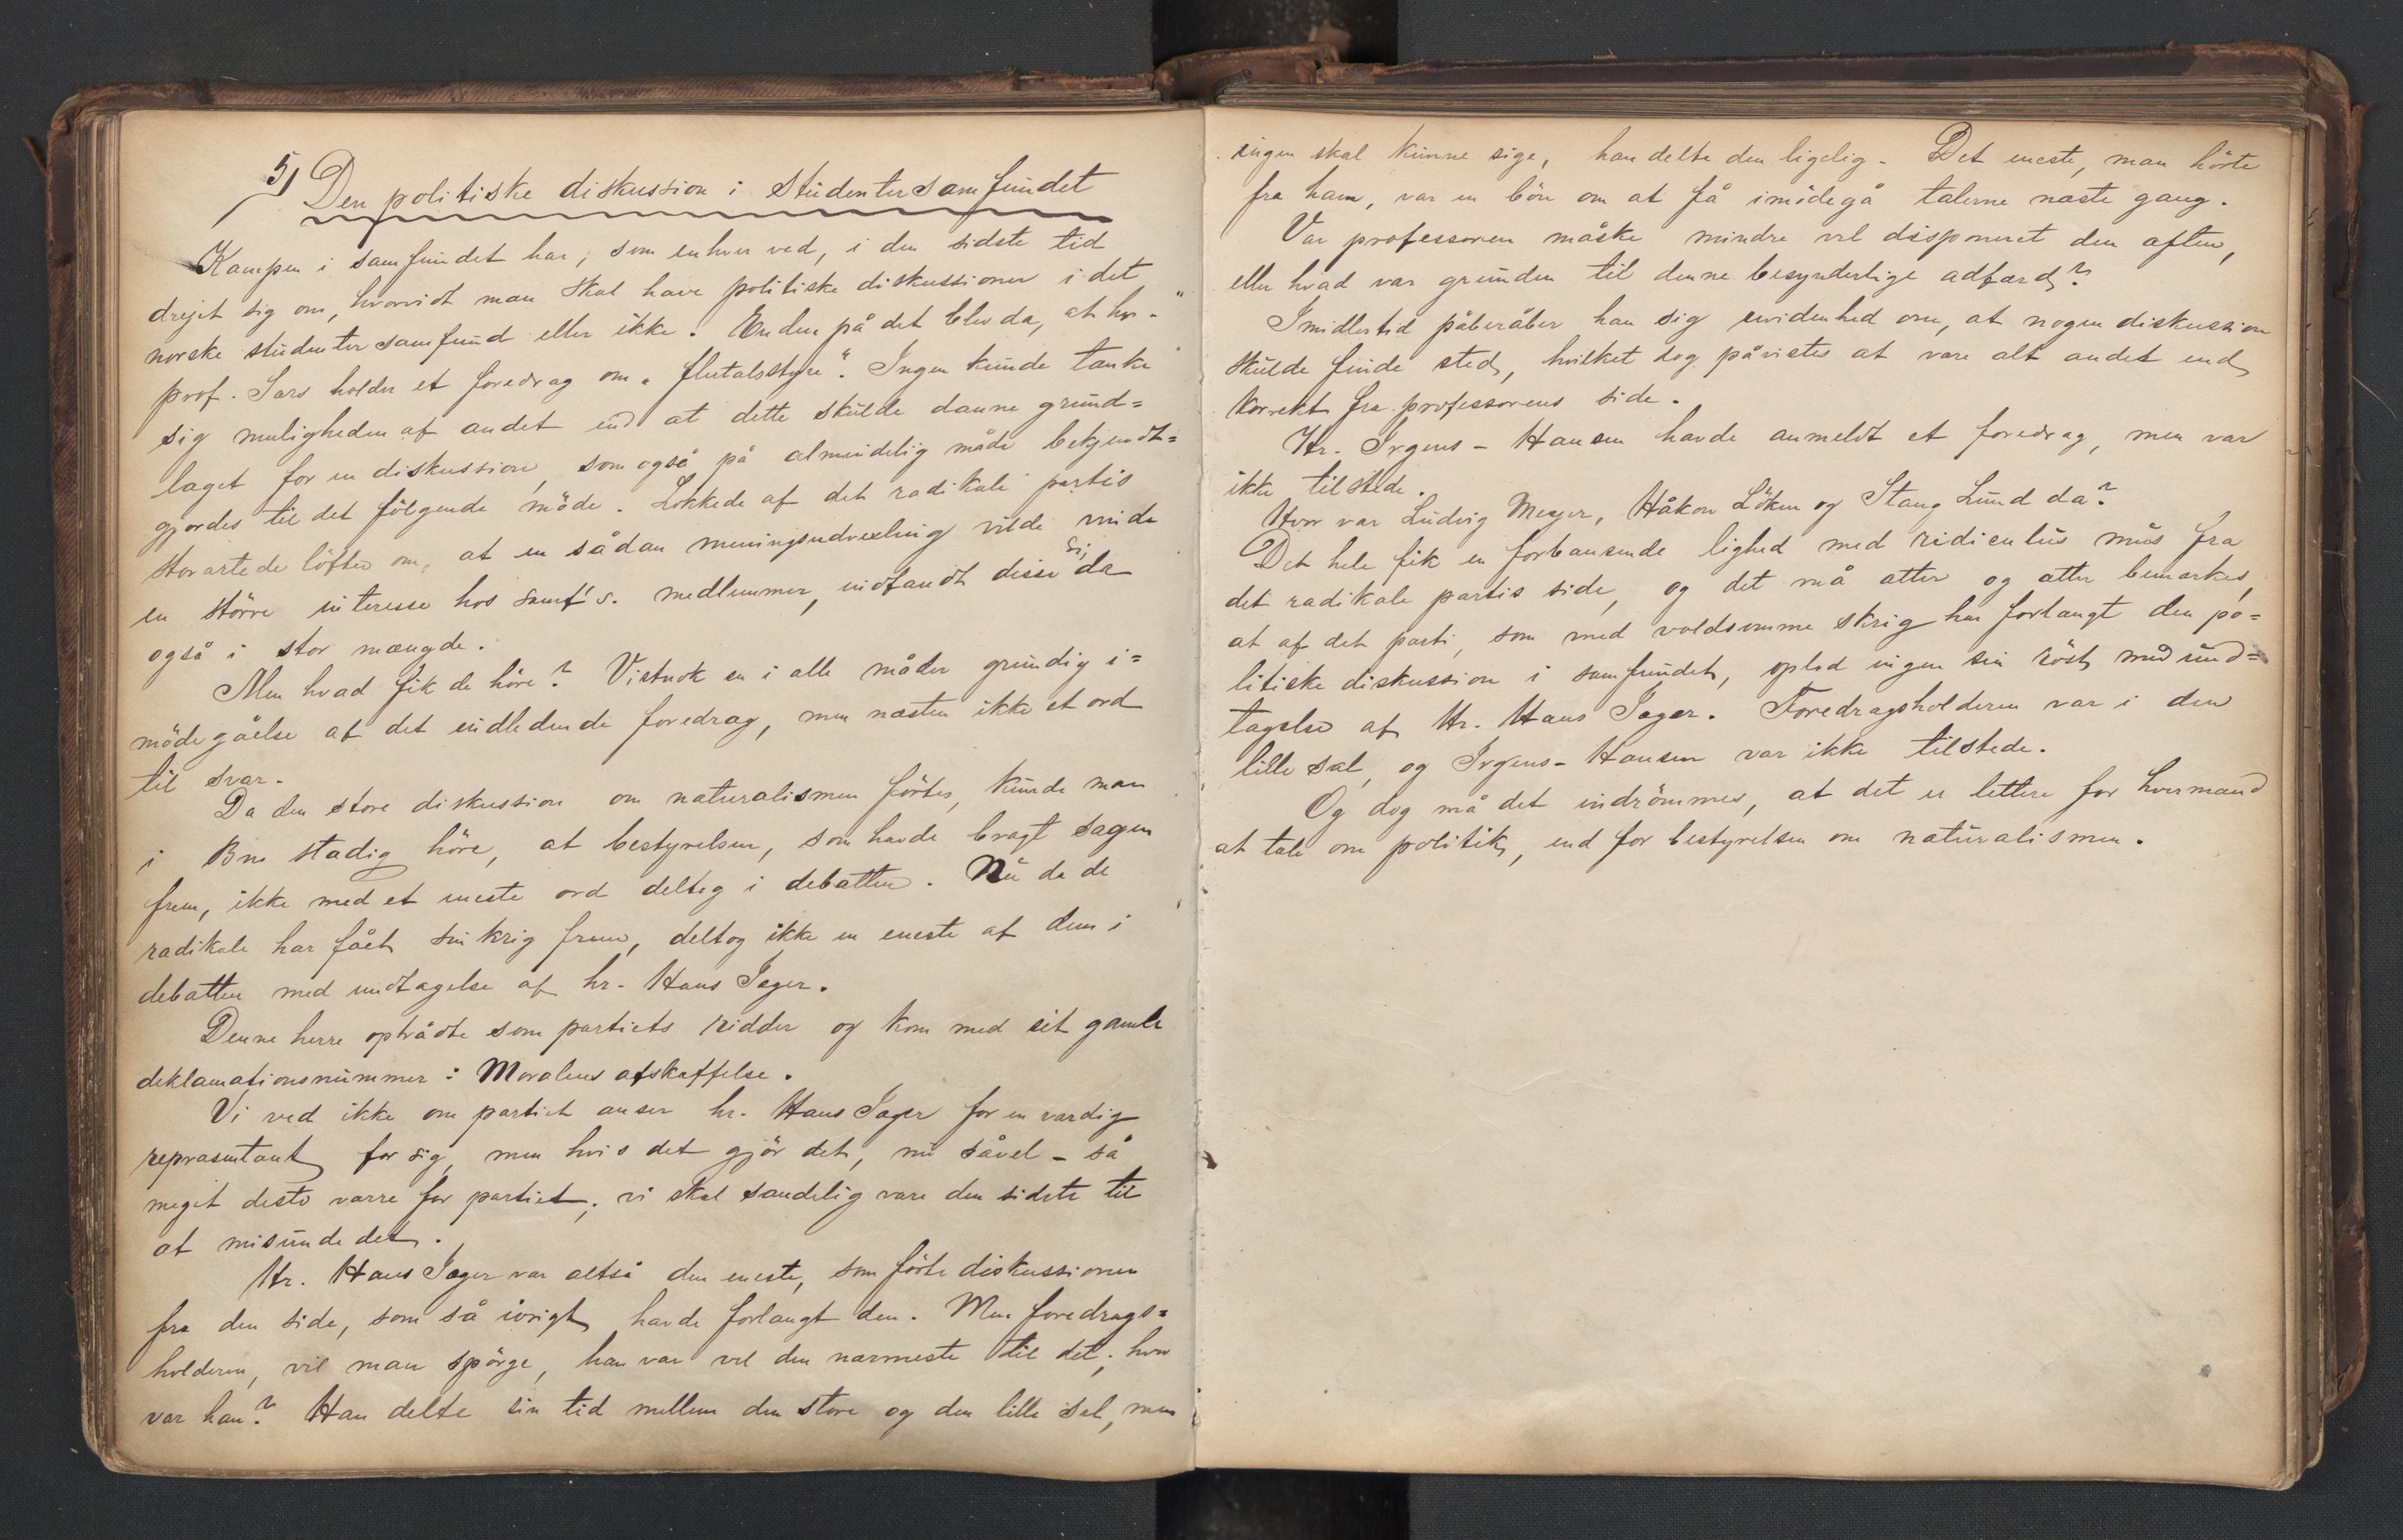 5) Den politiske diskussion i studentersamfundet
Kampen i samfundet har, som enhver ved, i den sidste tid
drejet sig om, hvorvidt man skal have politiske diskussioner i det
norske studentersamfund eller ikke. Enden på det blev da, at hr.
prof. Sars holder et foredrag om "flertalsstyre". Ingen kunde tænke
sig muligheden af andet end at dette skulde danne grund=
laget for en diskussion, som også på almindelig måde bekjendt=
gjordes til det følgende møde. Lokkede af det radikale partis
storartede løfter om, at en sådan meningsudvexling vilde vinde
en større interesse hos samf's. medlemmer, indfandt disse sig da
også i stor mængde.
Men hvad fik de høre? Vistnok en i alle måder grundig i=
mødegåelse af det indledende foredrag, men næsten ikke et ord
til svar.
Da den store diskussion om naturalismen førtes, kunde man
i Bne stadig høre, at bestyrelsen, som havde bragt sagen
frem, ikke med et eneste ord deltog i debatten. Nu da de
radikale har fået sin krig frem, deltog ikke en eneste af dem i
debatten med undtagelse af hr. Hans Jæger.
Denne herre optrådte som partiets ridder og kom med sit gamle
deklamationsnummer: Moralens afskaffelse.
Vi ved ikke om partiet anser hr. Hans Jæger for en værdig
repræsentant for sig, men hvis det gjør det, nu såvel – så
meget desto værre for partiet; vi skal sandelig være den sidste til
at misunde det.
Hr. Hans Jæger var altså den eneste, som førte diskussionen
fra den side, som så ivrigt havde forlangt den. Men foredrags=
holderen, vil man spørge, han var vel den nærmeste til det; hvor
var han? Han delte sin tid mellem den store og den lille sal, men
ingen skal kunne sige, han delte den ligelig. Det eneste, man hørte
fra ham, var en bøn om at få imødegå talerne næste gang.
Var professoren måske mindre vel disponeret den aften,
eller hvad var grunden til denne besynderlige adfærd?
Imidlertid påberåber han sig uvidenhed om, at nogen diskussion
skulde finde sted, hvilket dog påvistes at være alt andet end
korrekt fra professorens side.
Hr. Irgens-Hansen havde anmeldt et foredrag, men var
ikke tilstede.
Hvor var Ludvig Meyer, Håkon Løken og Stang Lund da?
Det hele fik en forbausende lighed med ridiculus mus fra
det radikale partis side, og det må atter og atter bemærkes,
at af det parti, som med voldsomme skrig har forlangt den po=
litiske diskussion i samfundet, oplod ingen sin røst med und=
tagelse af Hr. Hans Jæger. Foredragsholderen var i den
lille sal, og Irgens-Hansen var ikke tilstede.
Og dog må det indrømmes, at det er lettere for hvermand
at tale om politik, end for bestyrelsen om naturalismen.